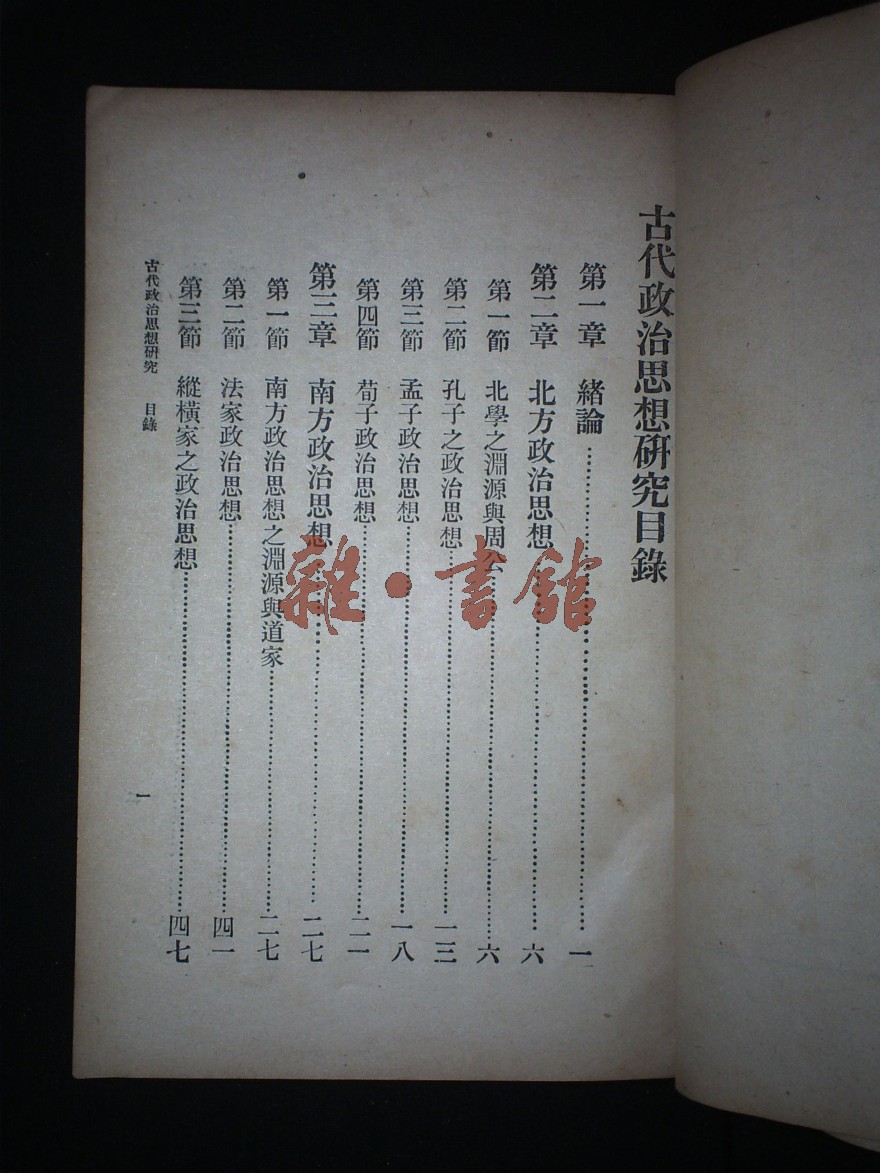 古代政治思想研究目錄
第一章 緒論……一
第二章 北方政治思想……六
第一節 北學之淵源與周公……六
第二節 孔子之政治思想……一三
第三節 孟子政治思想……一八
第四節 荀子政治思想……二一
第三章 南方政治思想……二七
第一節 南方政治思想之淵源與道家……二七
第二節 法家政治思想……四一
第三節 縱橫家之政治思想……四七
古代政治思想研究 目錄 一
雜·書館